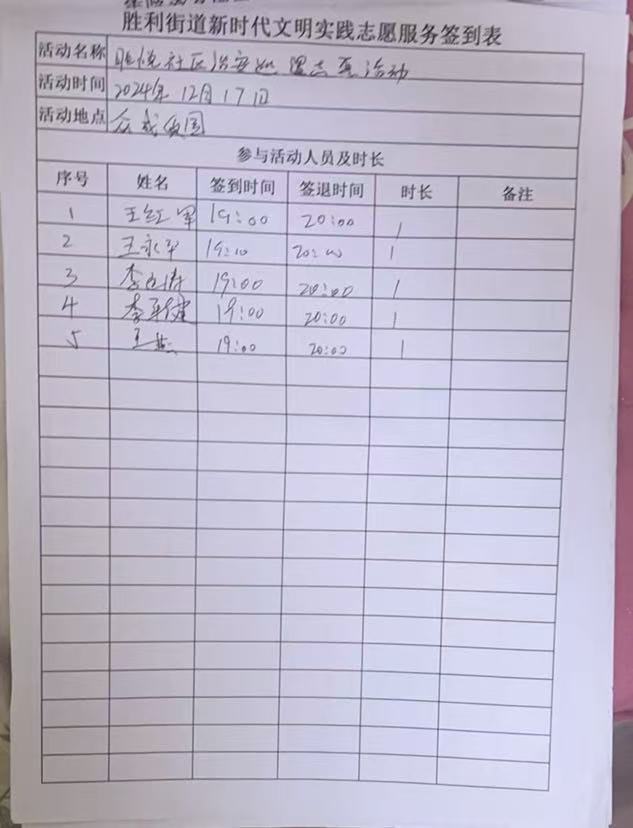 胜利街道新时代文明实践志愿服务签到表
活动名称 社区治安巡逻志愿活动
活动时间 2024年12月17日
活动地点 众成
参与活动人员及时长
序号 姓名 签到时间 签退时间 时长 备注
1 王红军 19:00 20:00 1
2 王永军 19:10 20:00 1
3 李 19:00 20:00 1
4 李 健 19:00 20:00 1
5 王 19:00 20:00 1